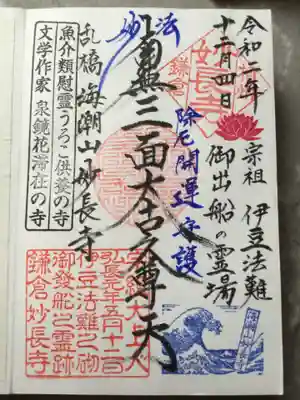 令和二年
十二月四日
宗祖 伊豆法難
御出船の霊場
鎌
妙長寺
除厄開運守護
妙法
南無三面大古久尊天
乱橋 海潮山妙長寺
魚介類慰霊うろこ供養の寺
文学作家 泉鏡花滞在の寺
大上人
弘長元年五月十二日
伊豆法難之砌
御發船之霊跡
鎌倉妙長寺